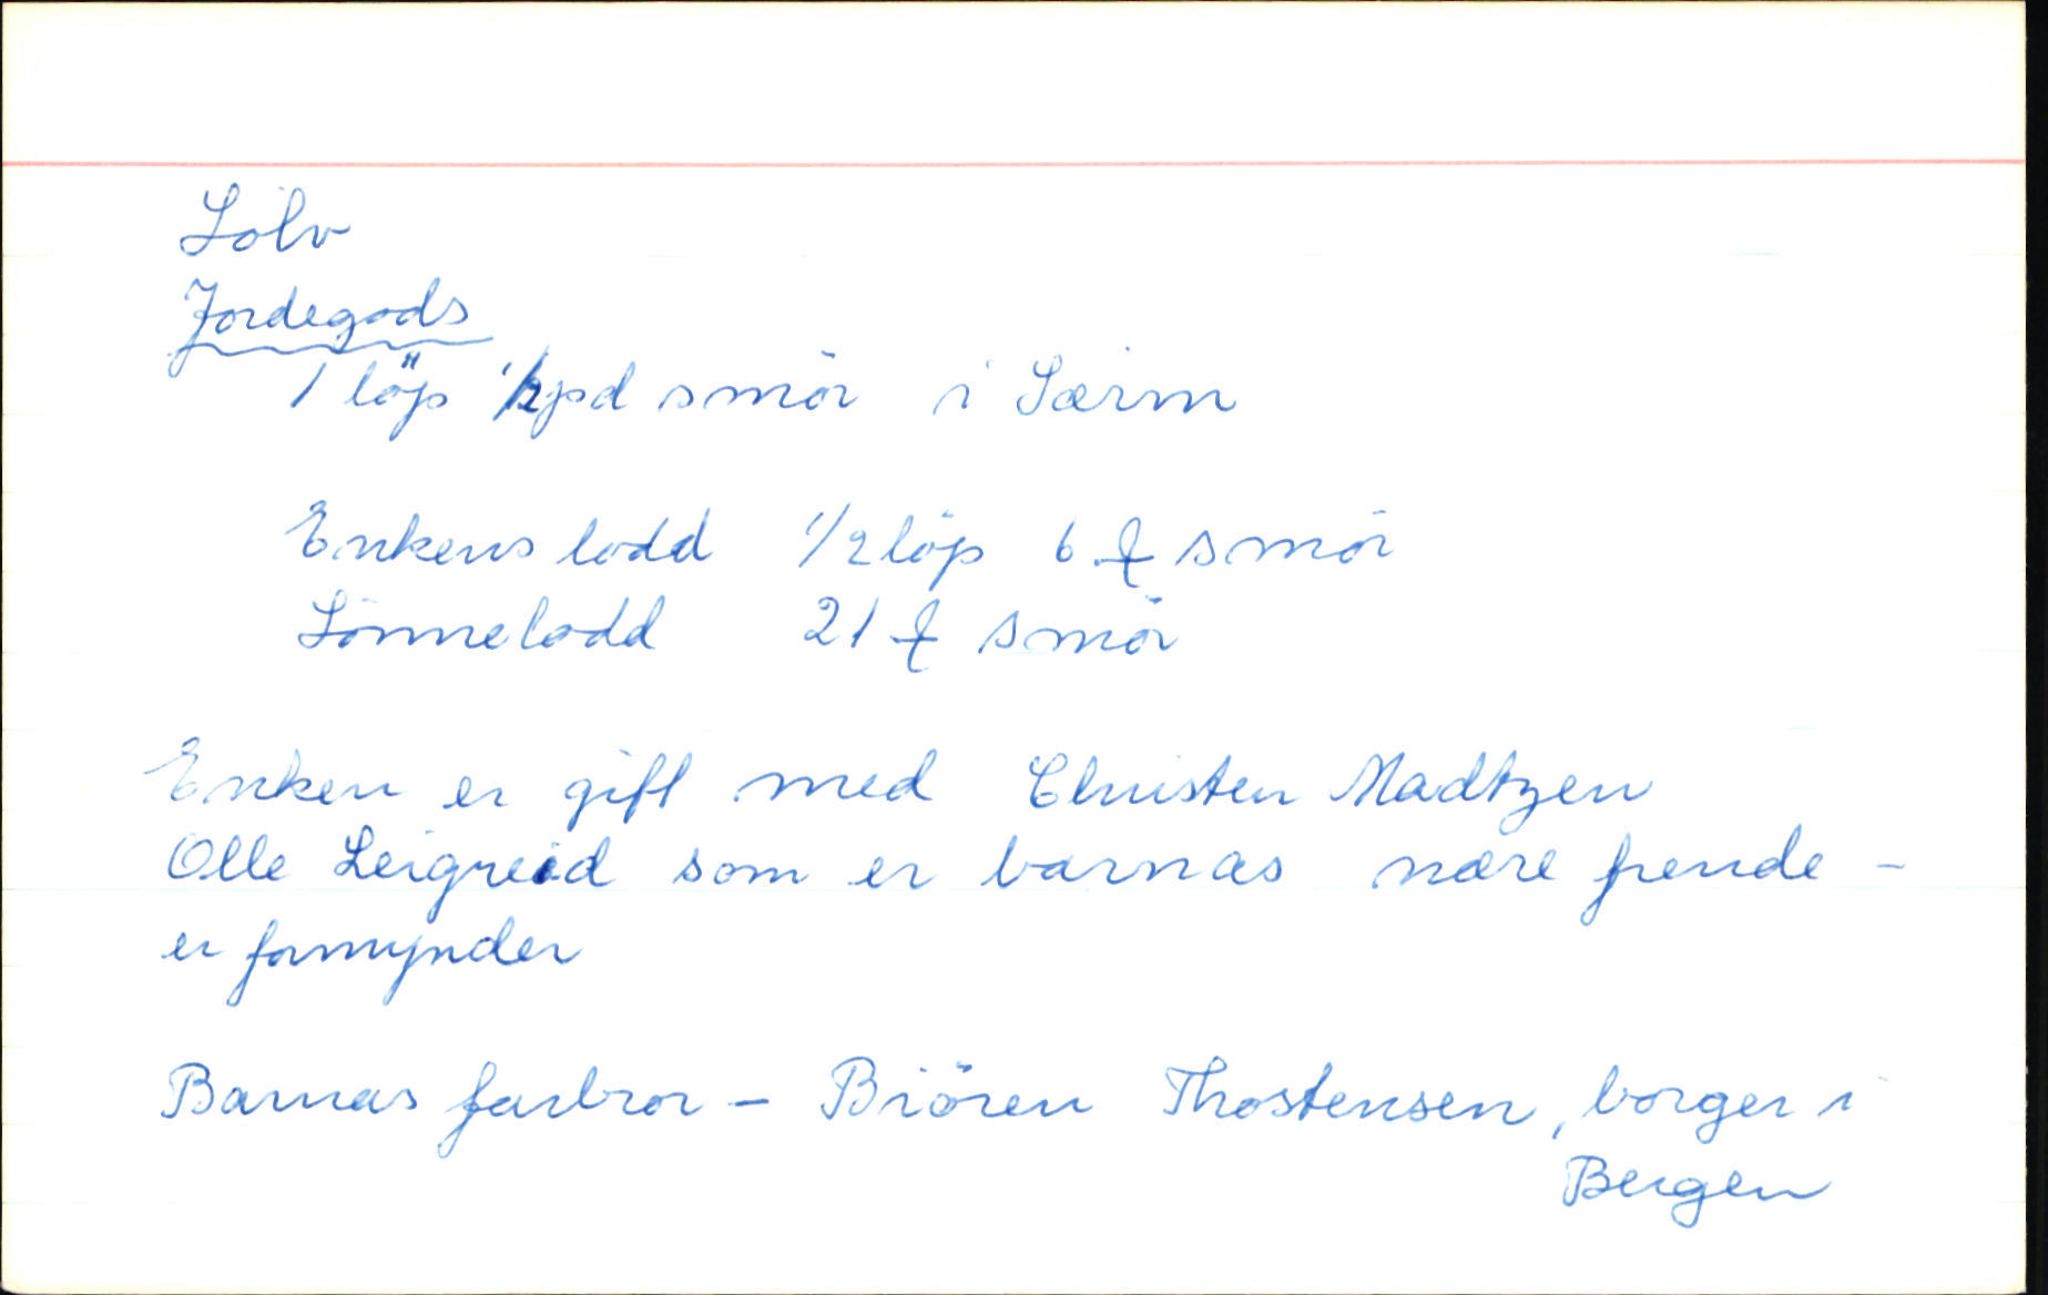 Sölv
Jordegods
1 löp 1/2 pd smör i Særm
Enkens lodd 1/2 löp 6 ℔ smör
Sönnelodd 21 ℔ smör
Enken er gift med Christen Madtzen
Olle Leigreid som er barnas nære frende -
er formynder
Barnas farbror - Biören Thostensen, borger i
Bergen